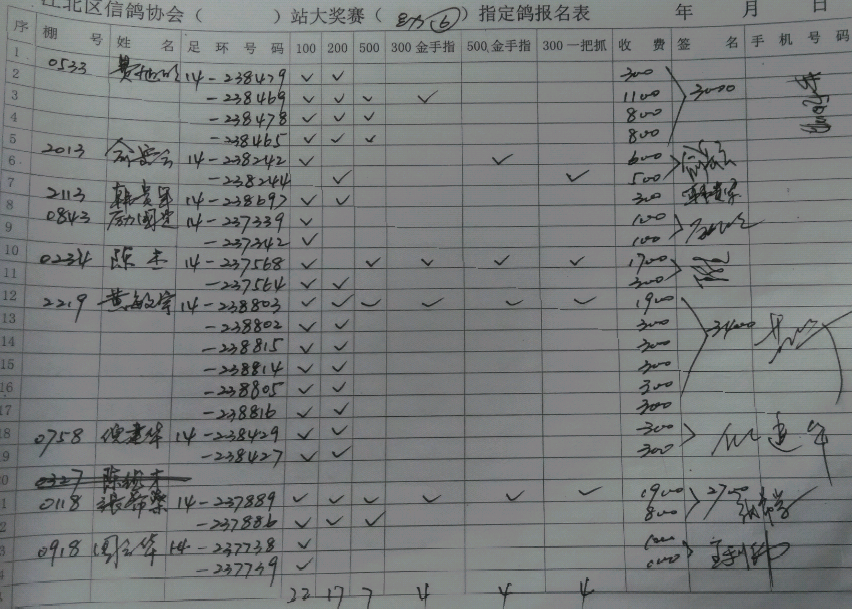 江北区信鸽协会（ ）站大奖赛（ ⑥）指定鸽报名表 年 月 日
序 棚 号 姓 名 足 环 号 码 100 200 500 300金手指 500,金手指 300一把抓 收 费 签 名 手 机 号 码
1 0533 14-238479 ✓ ✓ 300
2 -238469 ✓ ✓ ✓ ✓ 1100 3000
3 -238478 ✓ ✓ ✓ 800
4 -238465 ✓ ✓ ✓ 800
5 2013 14-238242 ✓ ✓ 600
6 -238244 ✓ ✓ 500
7 2113 韩贵军 14-238697 ✓ ✓ 300
8 0843 励国定 14-237339 ✓ 100
9 -237342 ✓ 100
10 0234 陈杰 14-237568 ✓ ✓ ✓ ✓ ✓ 1700
11 -237564 ✓ ✓ 300
12 2219 14-238803 ✓ ✓ ✓ ✓ ✓ ✓ 1900
13 -238802 ✓ ✓ 300 3400
14 -238815 ✓ ✓ 300
15 -238814 ✓ ✓ 300
16 -238805 ✓ ✓ 300
17 -238816 ✓ ✓ 300
18 0758 倪建华 14-238429 ✓ ✓ 300
19 -238427 ✓ ✓ 300
0327
0118 14-237889 ✓ ✓ ✓ ✓ ✓ ✓ 1900 2700
-237886 ✓ ✓ ✓ 800
0918 14-237738 ✓
-237739 ✓
22 17 7 4 4 4